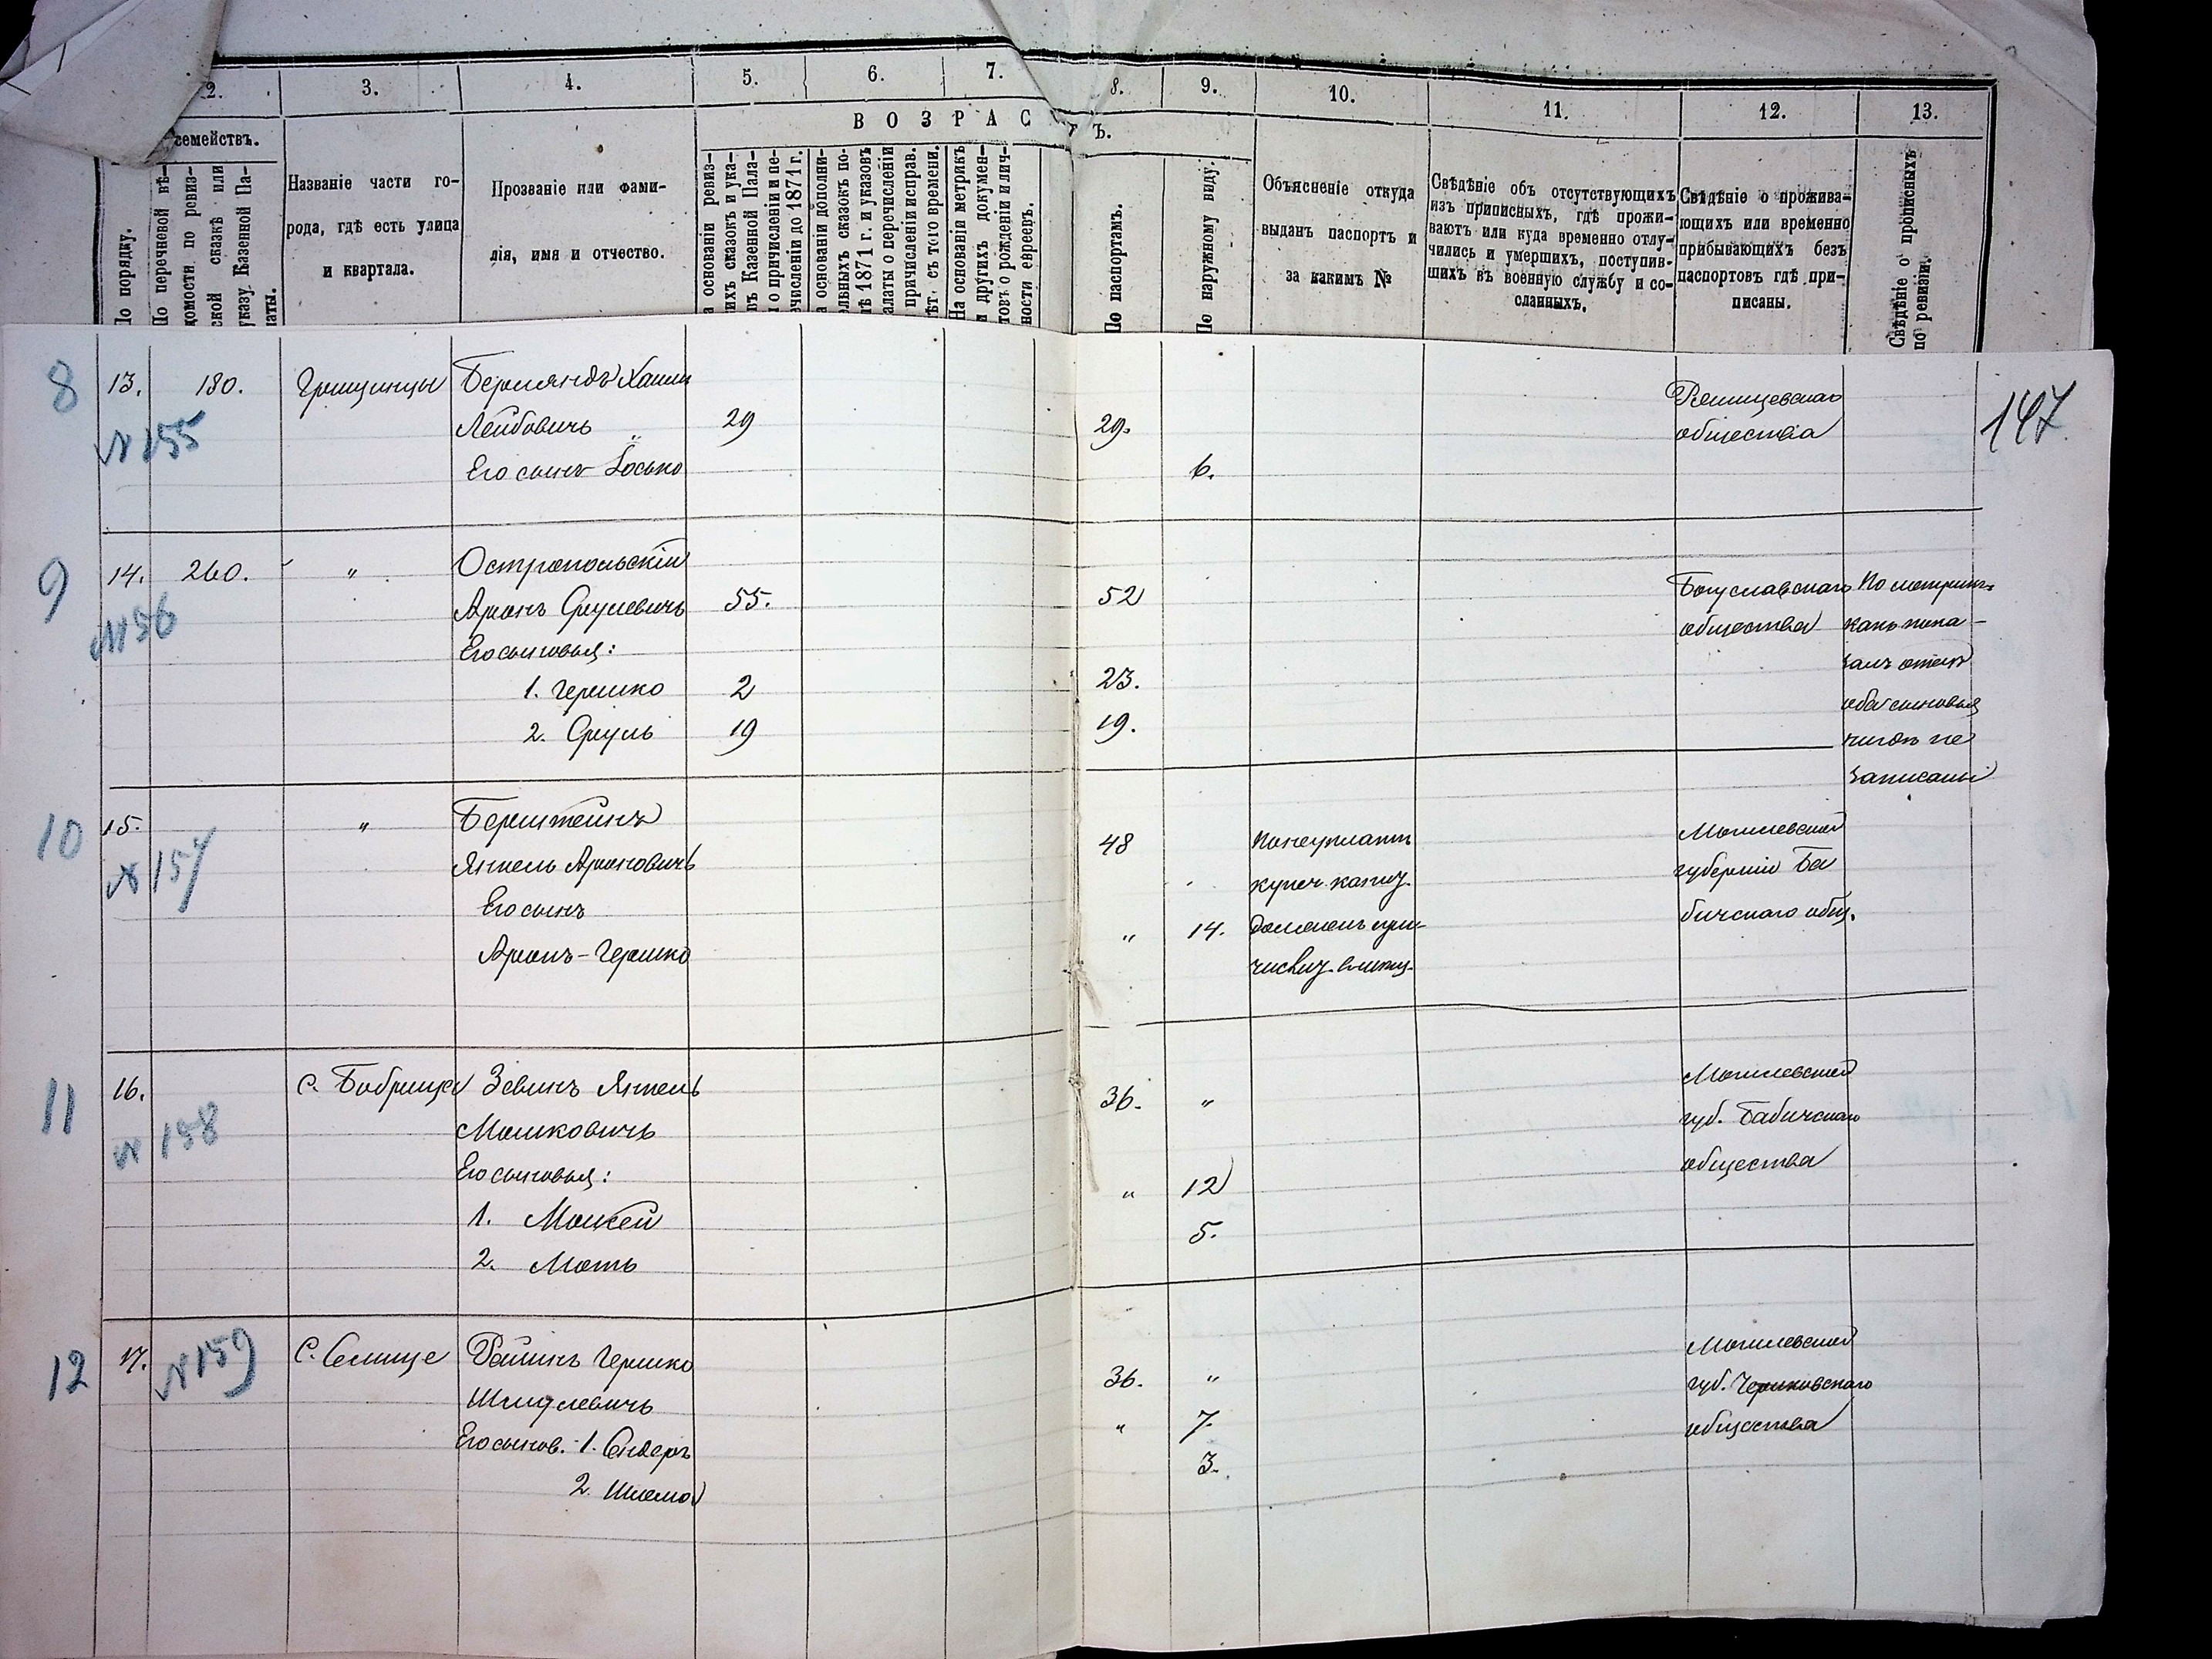 2.
3.
4.
5.
6.
7.
8.
9.
10.
11.
12.
13.
семействъ.
ВОЗРАСТЪ.
По порядку.
По перечневой вѣ-
домости по ревиз-
ской сказкѣ или
указу Казенной Па-
латы.
Названіе части го-
рода, гдѣ есть улица
и квартала.
Прозваніе или фами-
лія, имя и отчество.
а основаніи ревиз-
ихъ сказокъ и ука-
въ Казенной Пала-
и о причисленіи и пе-
ечисленіи до 1871 г.
а основаніи дополни-
ельныхъ сказокъ по-
лѣ 1871 г. и указовъ
алаты о перечисленіи
причисленіи исправ.
ѣт. съ того времени.
На основаніи метрикъ
и другихъ докумен-
товъ о рожденіи и лич-
ности евреевъ.
По паспортамъ.
По наружному виду.
Объясненіе откуда
выданъ паспортъ и
за какимъ №
Свѣдѣніе объ отсутствующихъ
изъ приписныхъ, гдѣ прожи-
ваютъ или куда временно отлу-
чились и умершихъ, поступив-
шихъ въ военную службу и со-
сланныхъ.
Свѣдѣніе о прожива-
ющихъ или временно
прибывающихъ безъ
паспортовъ гдѣ при-
писаны.
Свѣдѣніе о прописныхъ
по ревизіи.
147
8 13. 180. Грищинцы Берляндъ Хаим
№155 Лейбовичъ 29 29.
Его сынъ Іосько 6.
общества
9 14. 260. " Остропольскій
№156 Аронъ Срулевичъ 55. 52 Богуславскаго
Его сыновья: общества
1. Гершко 2 23.
2. Сруль 19 19.
По метрик.
какъ пока-
залъ отецъ
оба сыновья
нигдѣ не
записаны
10 15. " Беренштейнъ
№157 Янкель Ароновичъ 48
Его сынъ
Аронъ-Гершко " 14.
купеч. капит.
долженъ при-
Могилевской
губерніи Ба
бичскаго общ.
11 16. С. Бобрица Зевинъ Янкель 36. "
№158 Мошковичъ
Его сыновья:
1. Мошкей " 12
2. Моть 5.
Могилевской
губ. Бабичскаго
общества
12 17. №159 С. Селище Рейшнъ Гершко 36. "
Шмулевичъ
Его сынов. 1. Сендеръ " 7.
2. Шлема 3.
Могилевской
губ. Чериковскаго
общества